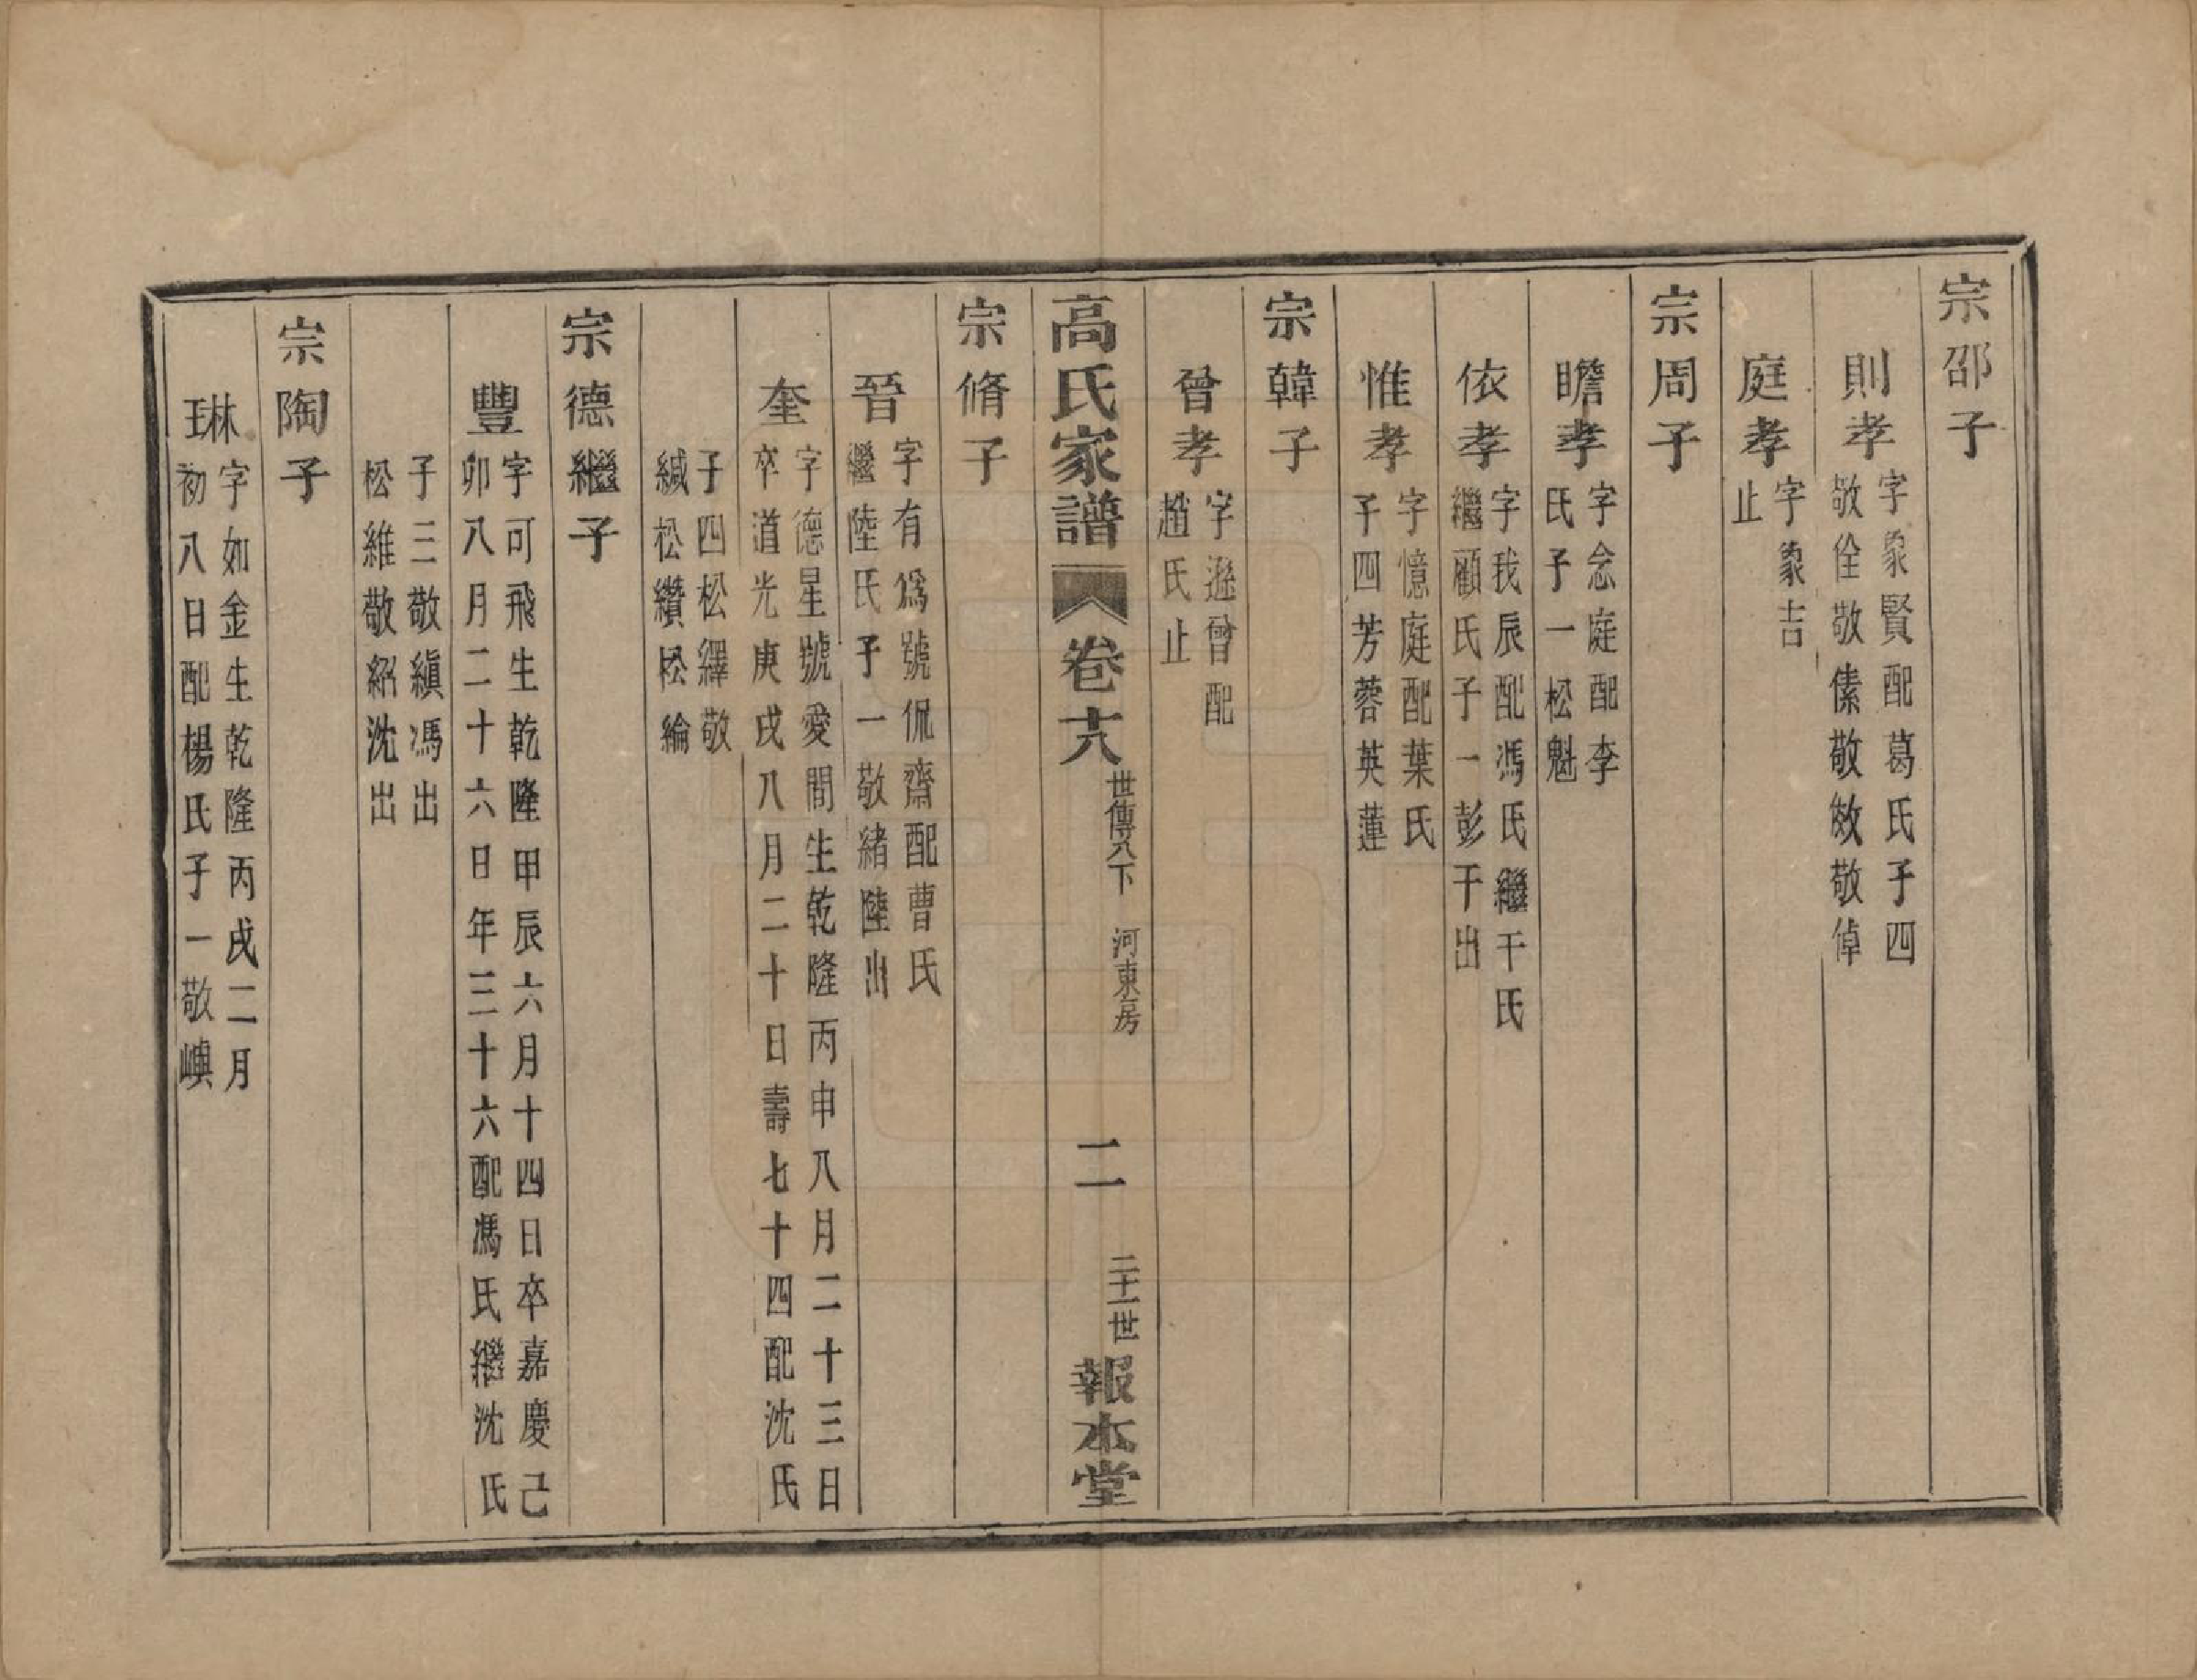 宗邵子
則孝
字象賢配葛氏子四
敬佺敬傃敬敫敬倬
庭孝
字象吉
止
宗周子
瞻孝
字念庭配李
氏子一松魁
依孝
字我辰配馮氏繼干氏
繼顧氏子一彭干出
惟孝
字憶庭配葉氏
子四芳蓉英蓮
宗韓子
曾孝
字遜曾配
趙氏止
高氏家譜
卷十八
世傳八下 河東房
二
二十一世
報本堂
宗脩子
晉
字有為號侃齋配曹氏
繼陸氏子一敬緒陸出
奎
字德星號愛閒生乾隆丙申八月二十三日
卒道光庚戌八月二十日壽七十四配沈氏
子四松繹敬
緘松纘松綸
宗德繼子
豐
字可飛生乾隆甲辰六月十四日卒嘉慶己
卯八月二十六日年三十六配馮氏繼沈氏
子三敬縝馮出
松維敬紹沈出
宗陶子
琳
字如金生乾隆丙戌二月
初八日配楊氏子一敬嶼